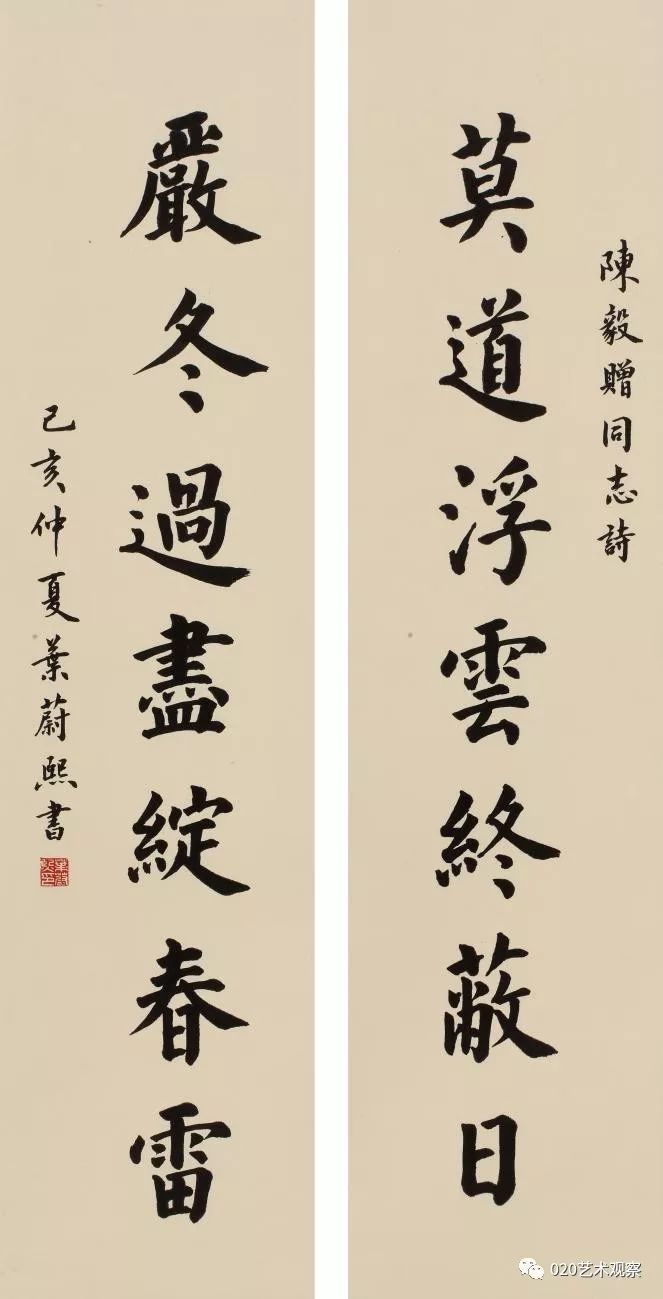 陳毅贈同志詩
莫道浮雲終蔽日
嚴冬過盡綻春雷
己亥仲夏葉蔚熙書
020艺术观察